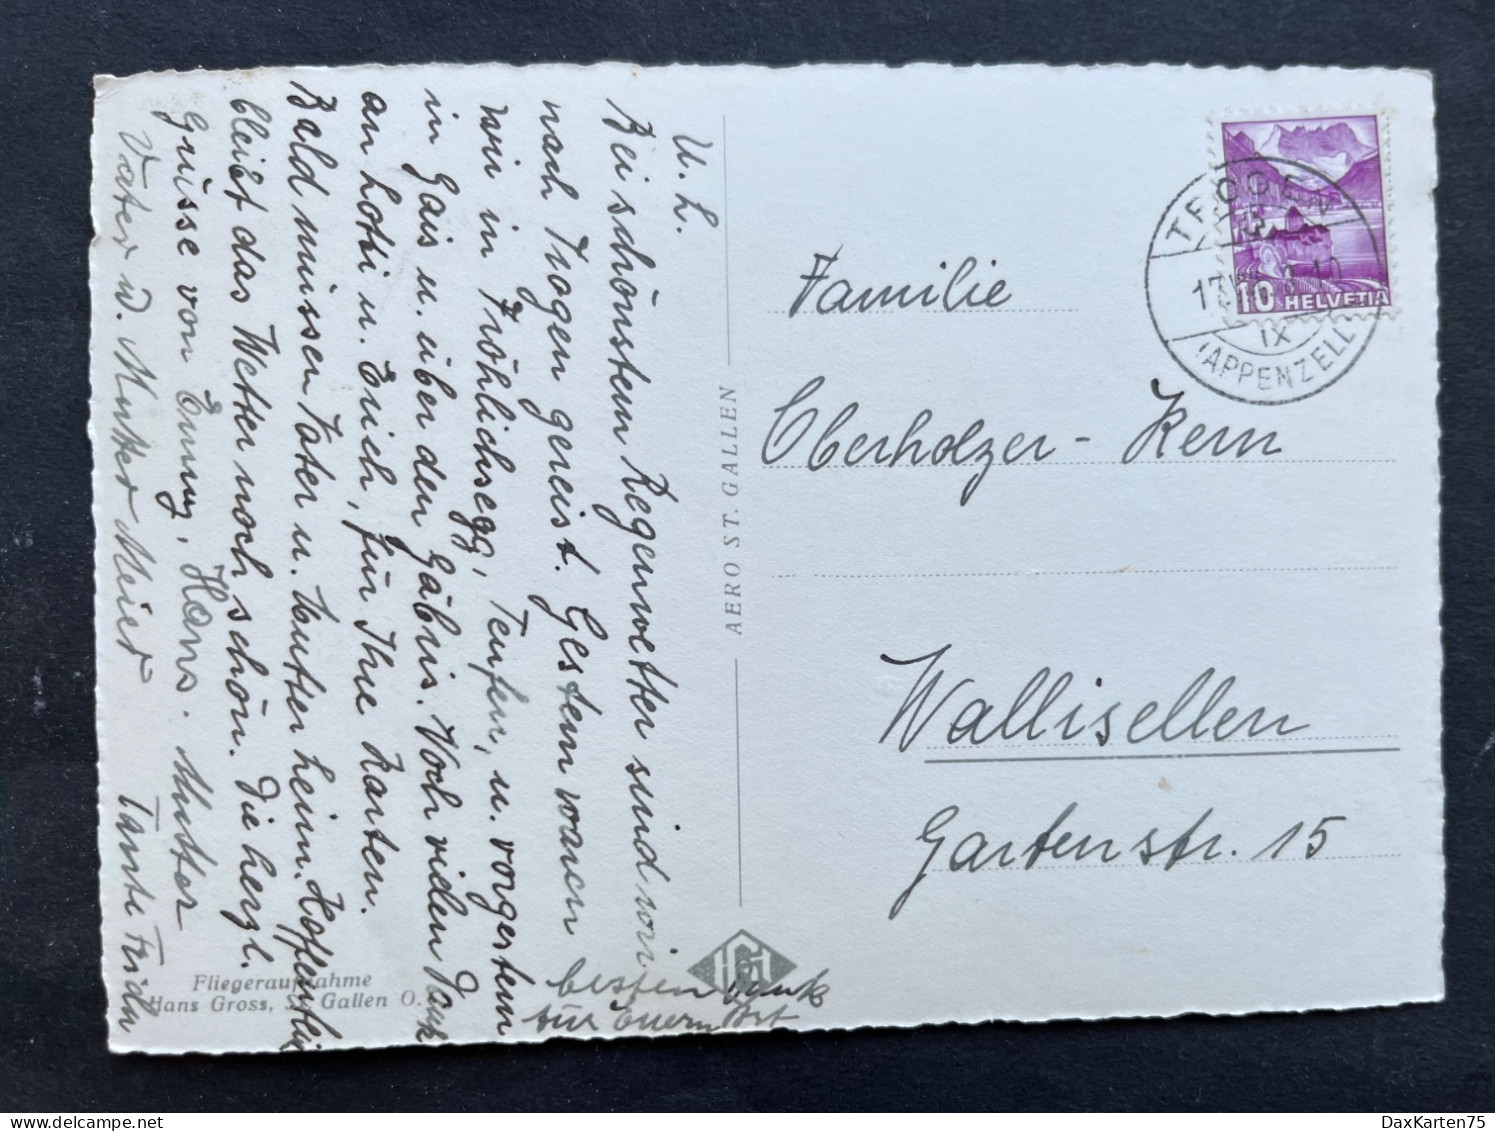 U. L.
Bei schönstem Regenwetter sind wir
nach Trogen gereist. Gestern waren
wir in Fröhlichsegg, Teufen, u. vorgestern
in Gais u. über den Gäbris. Noch vielen Dank
an Lotti u. Erich, für Ihre Karten.
Bald müssen Vater u. Mutter heim. Hoffentlich
bleibt das Wetter noch schön. Die herzl.
Grüsse von Emmy, Hans. Mutter
Vater u. Mutter Meier Tante Frida
besten Dank
für Euern
AERO ST. GALLEN
Fliegeraufnahme
Hans Gross, St. Gallen O.
HG
TROGEN
17. VIII.
IX
(APPENZELL)
10 HELVETIA
Familie
Oberholzer - Kern
Wallisellen
Gartenstr. 15
DaxKarten75